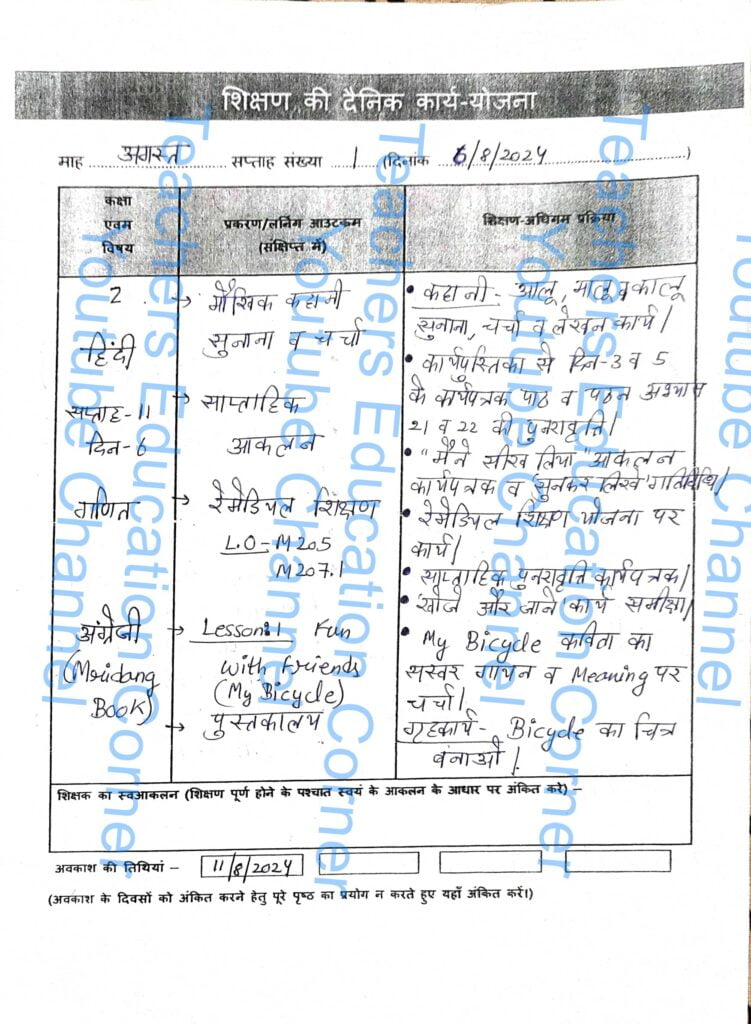 शिक्षण की दैनिक कार्य-योजना
माह अगस्त सप्ताह संख्या 1 (दिनांक 6/8/2024)
कक्षा
एवम
विषय
प्रकरण/लर्निंग आउटकम
(संक्षिप्त में)
शिक्षण-अधिगम प्रक्रिया
2
हिंदी
सप्ताह-11
दिन-6
→ मौखिक कहानी
सुनाना व चर्चा
→ साप्ताहिक
आकलन
• कहानी - आलू, मालू व कालू
सुनाना, चर्चा व लेखन कार्य।
• कार्यपुस्तिका से दिन-3 व 5
के कार्यपत्रक पाठ व पठन अभ्यास
21 व 22 की पुनरावृत्ति।
• "मैंने सीख लिया" आकलन
कार्यपत्रक व सुनकर लिखे गतिविधि।
गणित
→ रेमेडियल शिक्षण
L.O-M205
M207.1
• रेमेडियल शिक्षण योजना पर
कार्य।
• साप्ताहिक पुनरावृत्ति कार्यपत्रक।
• 'खोजे और जाने' कार्य समीक्षा।
अंग्रेजी
(Mridang
BOOK)
→ Lesson:1 Fun
with friends
(My Bicycle)
→ पुस्तकालय
• My Bicycle कविता का
सस्वर गायन व Meaning पर
चर्चा।
गृहकार्य - Bicycle का चित्र
बनाओ।
शिक्षक का स्वआकलन (शिक्षण पूर्ण होने के पश्चात स्वयं के आकलन के आधार पर अंकित करे) –
अवकाश की तिथियां – 11/8/2024
(अवकाश के दिवसों को अंकित करने हेतु पूरे पृष्ठ का प्रयोग न करते हुए यहाँ अंकित करें।)
Teachers Education Corner
Youtube Channel
Teachers Education Corner
Youtube Channel
Teachers Education Corner
Youtube Channel